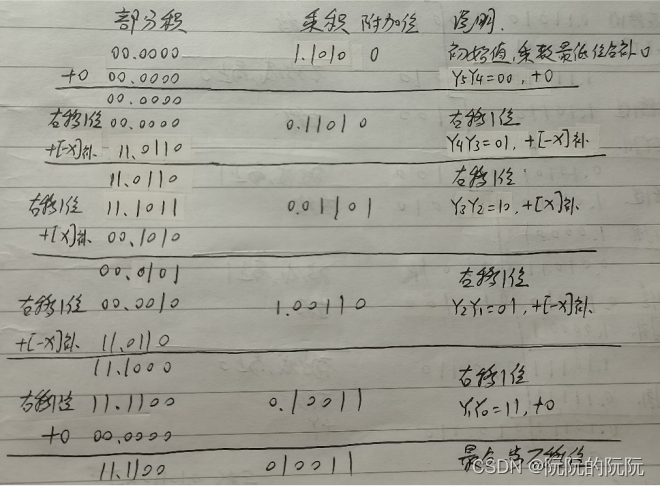 部分积 乘积 附加位 说明.
00.0000 1.1010 0 初始值,乘数最低位后补0
+0 00.0000 Y5Y4=00, +0
00.0000
右移1位 00.0000 0.11010 右移1位
+[-X]补. 11.0110 Y4Y3=01, +[-X]补.
11.0110 右移1位
右移1位 11.1011 0.01101 Y3Y2=10, +[X]补.
+[X]补. 00.1010
00.0101 右移1位
右移1位 00.0010 1.00110 Y2Y1=01, +[-X]补.
+[-X]补. 11.0110
11.1000 右移1位
右移1位 11.1100 0.10011 Y1Y0=11, +0
+0 00.0000
11.1100 010011 最后
CSDN @阮阮的阮阮